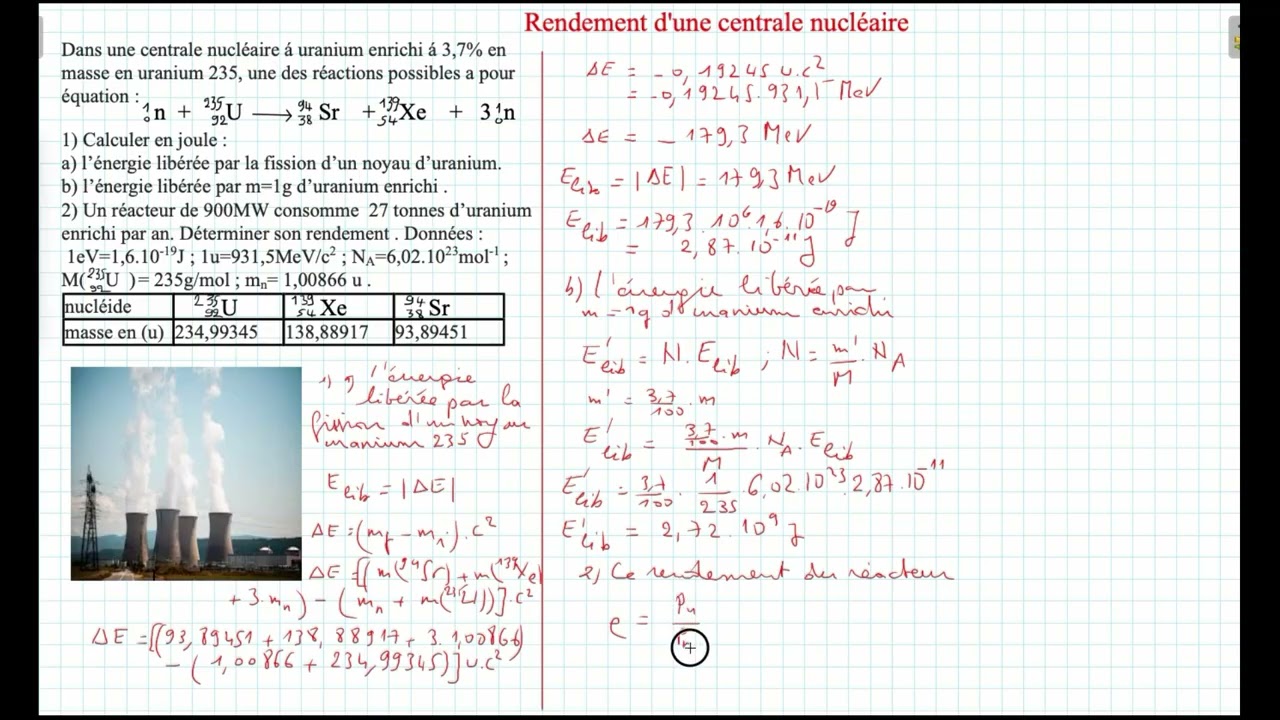 Rendement d'une centrale nucléaire
Dans une centrale nucléaire á uranium enrichi á 3,7% en
masse en uranium 235, une des réactions possibles a pour
équation :
¹₀n + ²³⁵₉₂U ⟶ ⁹⁴₃₈Sr + ¹³⁹₅₄Xe + 3 ¹₀n
1) Calculer en joule :
a) l'énergie libérée par la fission d'un noyau d'uranium.
b) l'énergie libérée par m=1g d'uranium enrichi .
2) Un réacteur de 900MW consomme 27 tonnes d'uranium
enrichi par an. Déterminer son rendement . Données :
1eV=1,6.10⁻¹⁹J ; 1u=931,5MeV/c² ; N_A=6,02.10²³mol⁻¹ ;
M(²³⁵₉₂U )= 235g/mol ; mₙ= 1,00866 u .
nucléide ²³⁵₉₂U ¹³⁹₅₄Xe ⁹⁴₃₈Sr
masse en (u) 234,99345 138,88917 93,89451
l'énergie
libérée par la
fission d'un noyau
uranium 235
E_lib = |ΔE|
ΔE = (m_f − m_i).c²
ΔE = [(m(⁹⁴Sr) + m(¹³⁹Xe)
+ 3.mₙ) − (mₙ + m(²³⁵U))].c²
ΔE = [(93,89451 + 138,88917 + 3.1,00866)
− (1,00866 + 234,99345)] u.c²
ΔE = −0,19245 u.c²
= −0,19245.931,5 MeV
ΔE = − 179,3 MeV
E_lib = |ΔE| = 179,3 MeV
E_lib = 179,3.10⁶.1,6.10⁻¹⁹ J
= 2,87.10⁻¹¹ J
b) l'énergie libérée par
m = 1g d'uranium enrichi
E'_lib = N.E_lib ; N = m'/M . N_A
m' = 3,7/100 . m
E'_lib = (3,7/100 . m)/M . N_A . E_lib
E'_lib = 3,7/100 . 1/235 . 6,02.10²³.2,87.10⁻¹¹
E'_lib = 2,72.10⁹ J
2) Ce rendement du réacteur
e = Pᵤ/